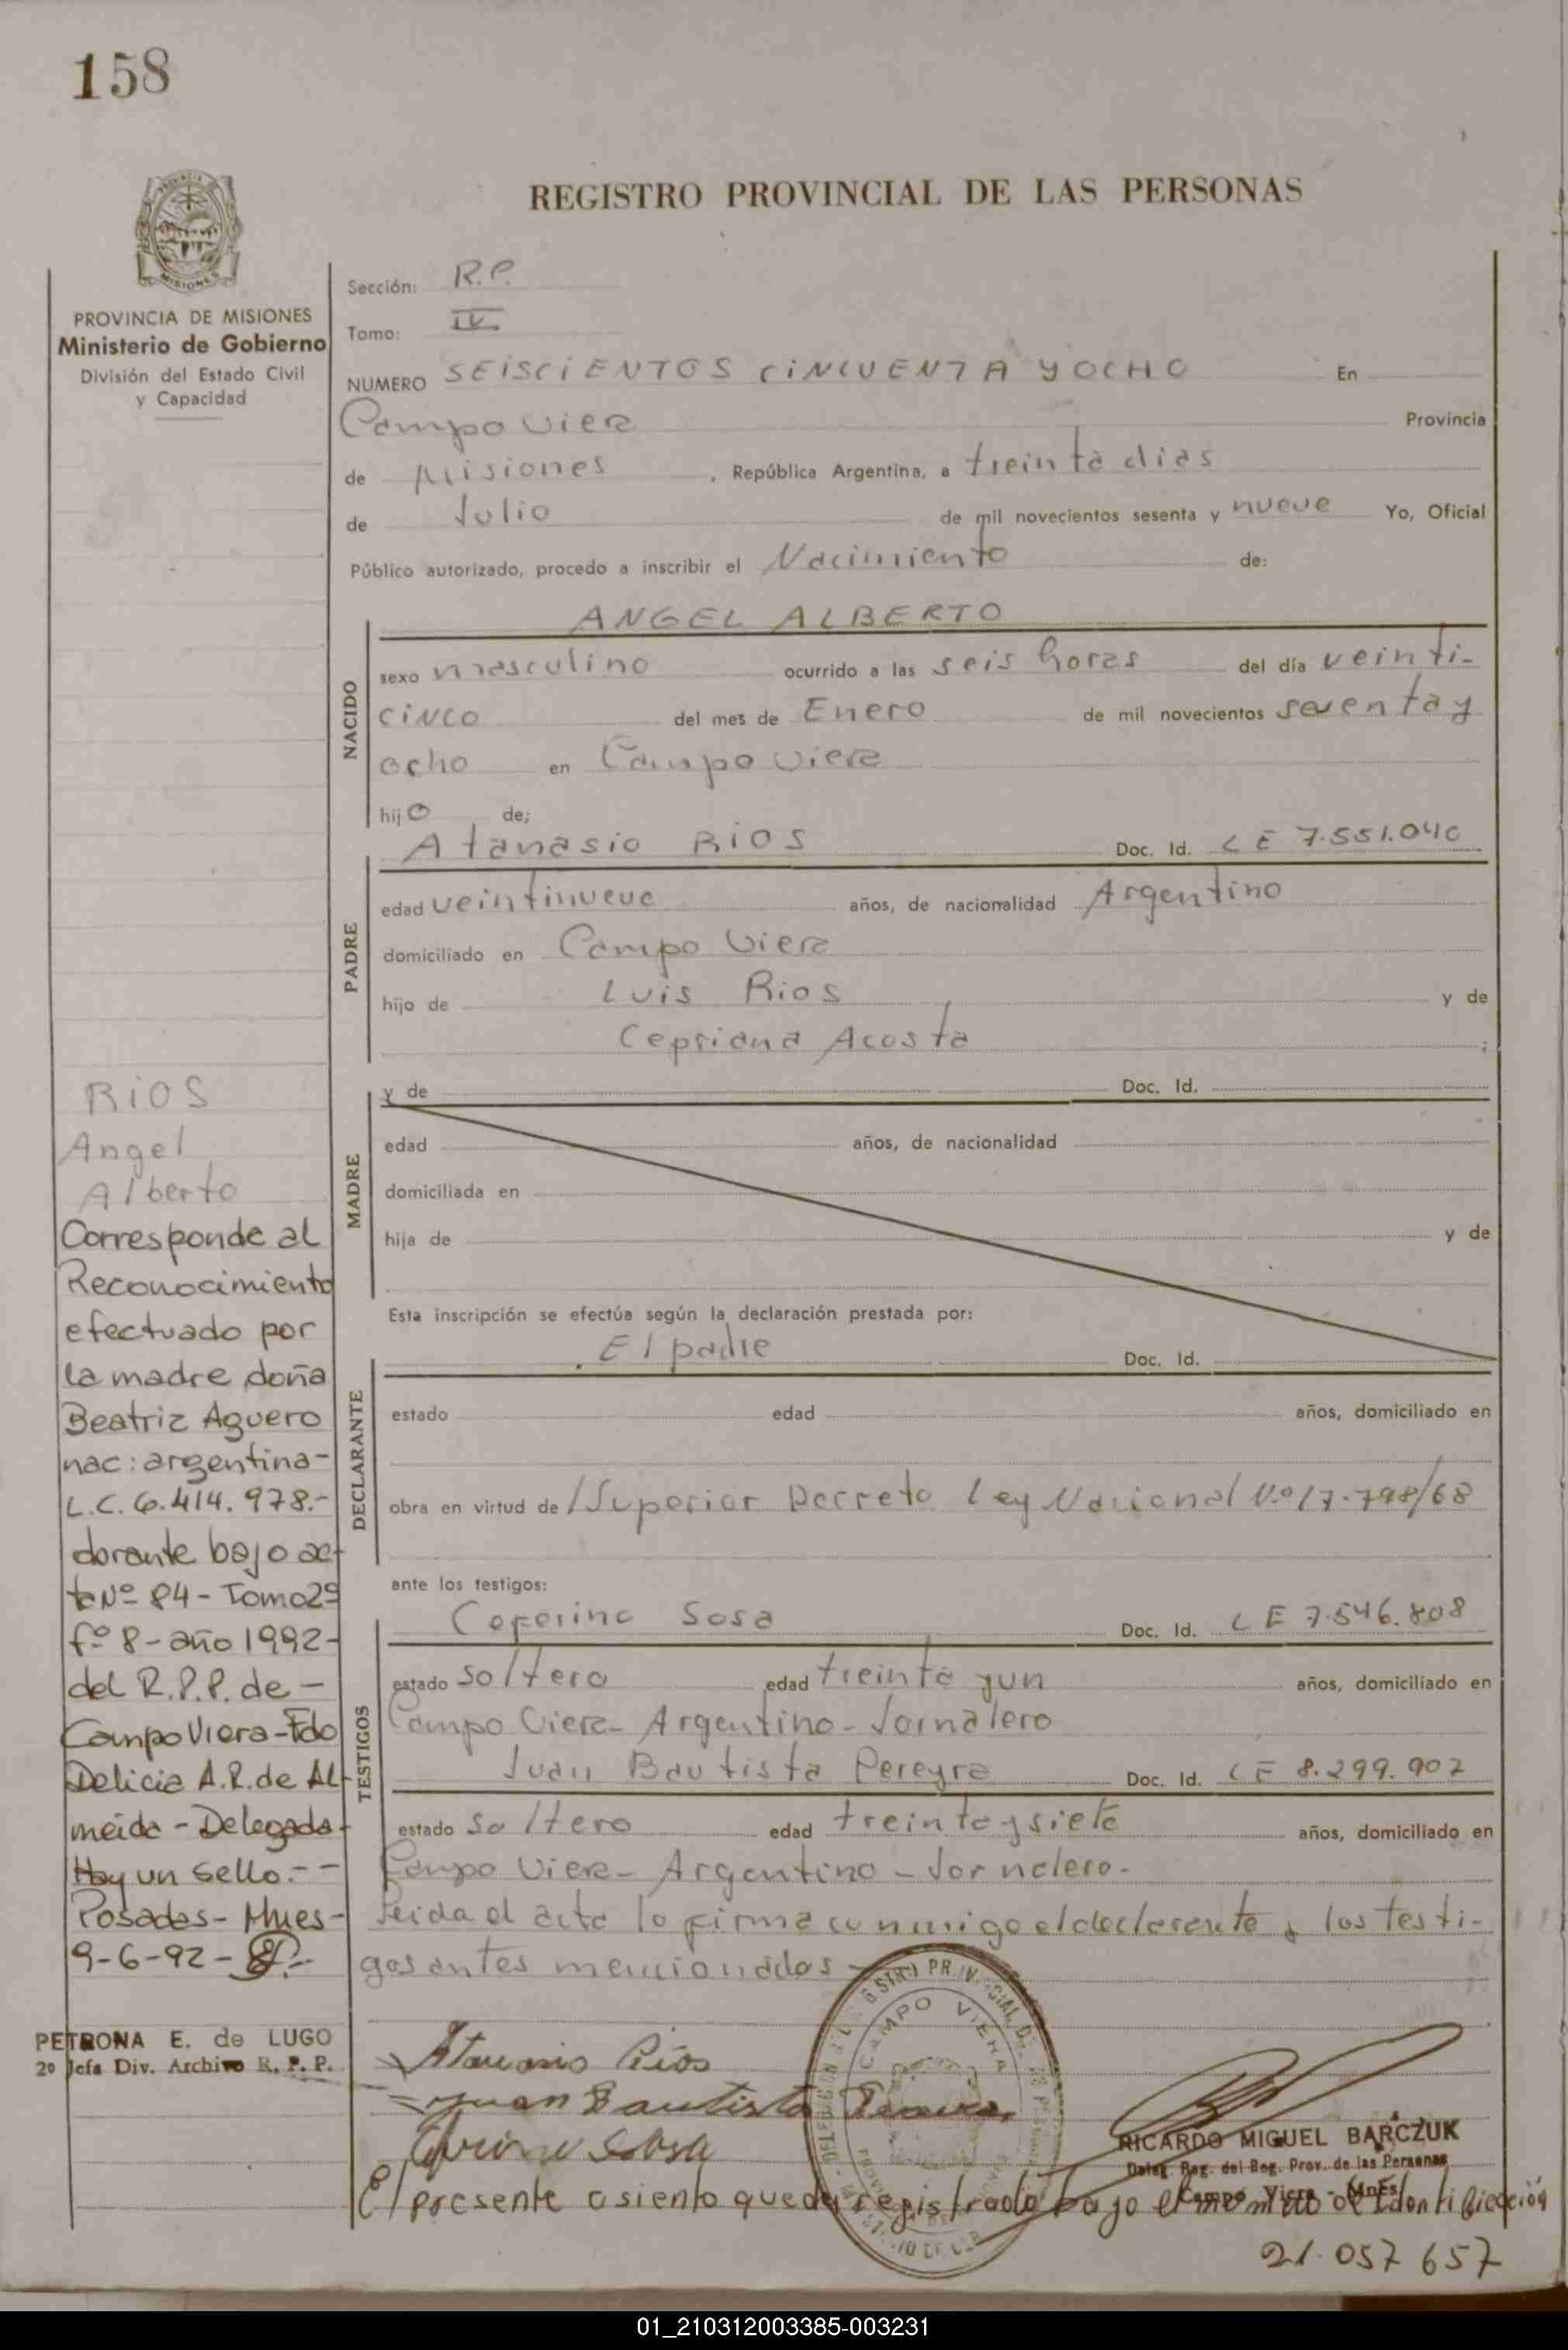 158
REGISTRO PROVINCIAL DE LAS PERSONAS
MISIONES
PROVINCIA DE MISIONES
Ministerio de Gobierno
División del Estado Civil
y Capacidad
Sección: R.P.
Tomo: IV
NUMERO SEISCIENTOS CINCUENTA Y OCHO En
Campo Viera Provincia
de Misiones , República Argentina, a treinta dias
de Julio de mil novecientos sesenta y nueve Yo, Oficial
Público autorizado, procedo a inscribir el Nacimiento de:
NACIDO
ANGEL ALBERTO
sexo masculino ocurrido a las seis horas del día veinti-
cinco del mes de Enero de mil novecientos seventa y
ocho en Campo Viera
hijo de;
PADRE
Atanasio RIOS Doc. Id. LE 7.551.040
edad veintinueve años, de nacionalidad Argentino
domiciliado en Campo Viera
hijo de Luis Rios y de
Cepriana Acosta ;
MADRE
y de Doc. Id.
edad años, de nacionalidad
domiciliada en
hija de y de
Esta inscripción se efectúa según la declaración prestada por:
DECLARANTE
El padre Doc. Id.
estado edad años, domiciliado en
obra en virtud de /Superior Decreto Ley Nacional Nº 17.798/68
ante los testigos:
TESTIGOS
Ceferino Sosa Doc. Id. LE 7.546.808
estado soltero edad treinta y un años, domiciliado en
Campo Viera- Argentino- Jornalero
Juan Bautista Pereyra Doc. Id. LE 8.299.902
estado soltero edad treinta y siete años, domiciliado en
Campo Viera- Argentino- Jornalero-
Leida el acta lo firma conmigo el declarante y los testi-
gos antes mencionados
Atanasio Rios
Juan Bautista
Sosa
CAMPO VIERA
RICARDO MIGUEL BARCZUK
Deleg. Reg. del Reg. Prov. de las Personas
Campo Viera - Mnes.
El presente asiento queda registrado bajo el número de Identificación
21.057 657
RIOS
Angel
Alberto
Corresponde al
Reconocimiento
efectuado por
la madre doña
Beatriz Aguero
nac: argentina-
L.C. 6.414.978.-
dorante bajo ac-
ta Nº 84- Tomo 2º
fº 8- año 1992-
del R.P.P. de -
Campo Viera- Fdo
Delicia A.R. de Al-
meida - Delegada-
Hay un sello.--
Posadas- Mnes-
9-6-92-
PETRONA E. de LUGO
2º Jefa Div. Archivo R. P. P.
01_210312003385-003231